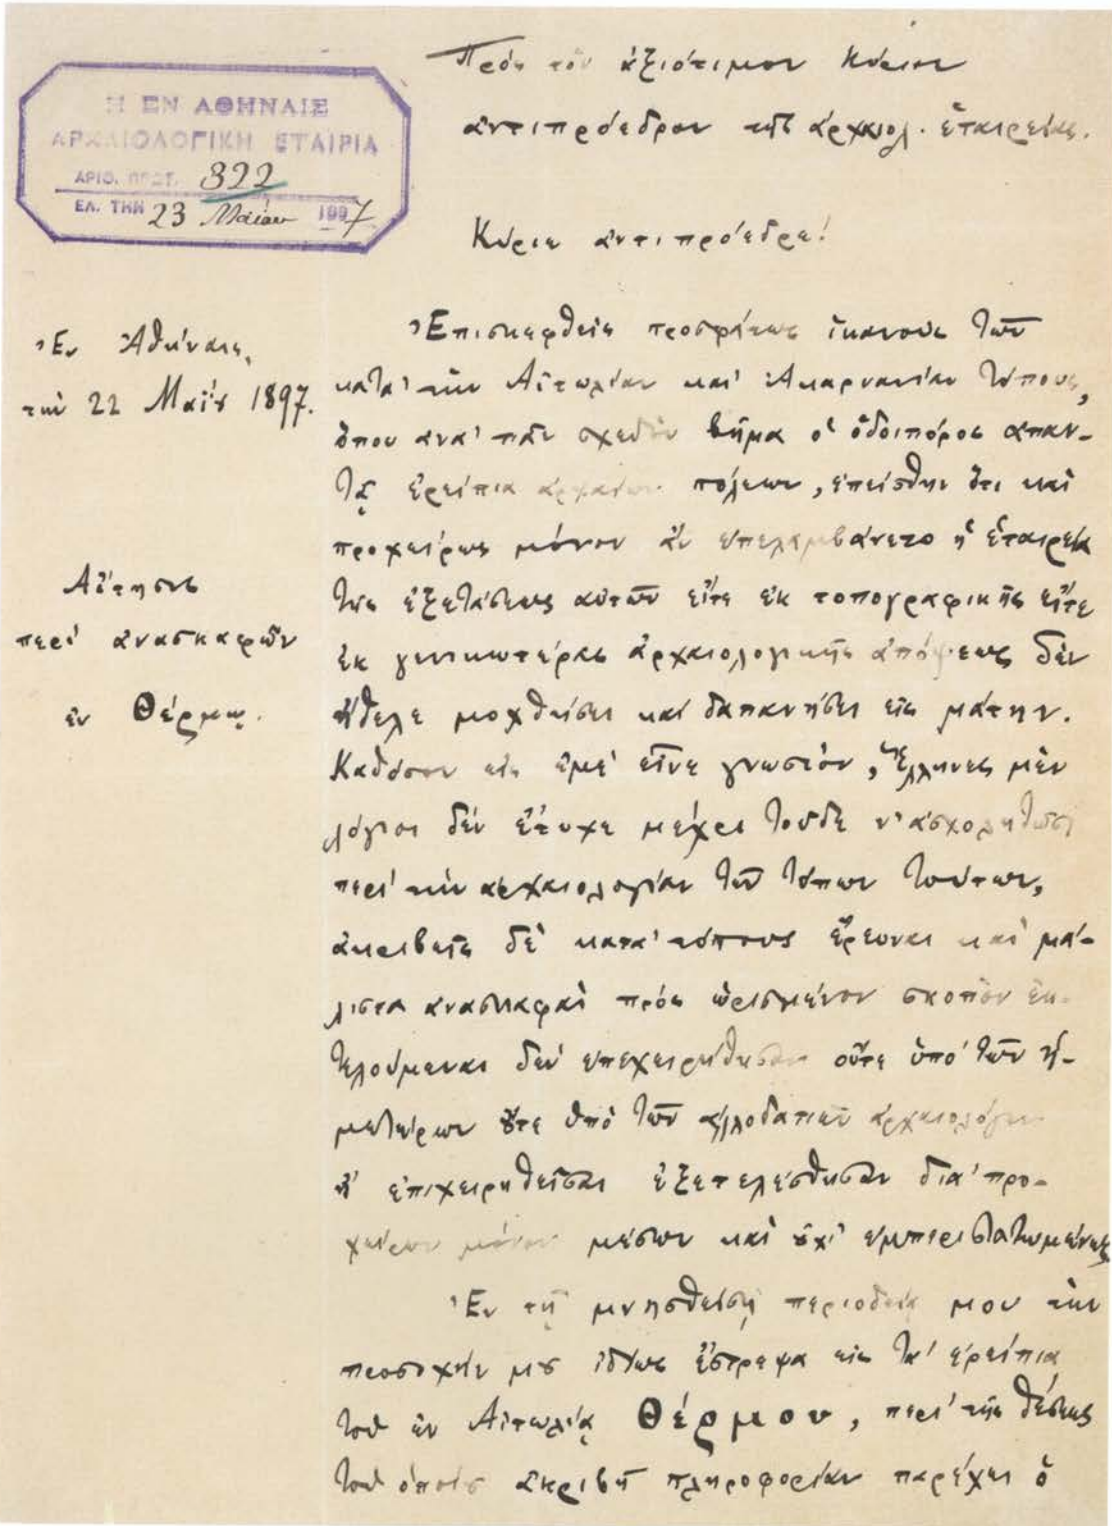 Πρὸς τὸν ἀξιότιμον Κύριον
ἀντιπρόεδρον τῆς ἀρχαιολ. ἑταιρείας.
Η ΕΝ ΑΘΗΝΑΙΣ
ΑΡΧΑΙΟΛΟΓΙΚΗ ΕΤΑΙΡΙΑ
ΑΡΙΘ. ΠΡΩΤ. 322
ΕΛ. ΤΗΝ 23 Μαΐου 1897
Κύριε ἀντιπρόεδρε!
Ἐν Ἀθήναις,
τῇ 22 Μαΐου 1897.
Αἴτησις
περὶ ἀνασκαφῶν
ἐν Θέρμῳ.
Ἐπισκεφθεὶς προσφάτως ἱκανοὺς τῶν
κατὰ τὴν Αἰτωλίαν καὶ Ἀκαρνανίαν τόπους,
ὅπου ἀνὰ πᾶν σχεδὸν βῆμα ὁ ὁδοιπόρος ἀπαν-
τᾷ ἐρείπια ἀρχαίων πόλεων, ἐπείσθην ὅτι καὶ
προχείρως μόνον ἂν ὑπελαμβάνετο ἡ ἑταιρεία
τῆς ἐξετάσεως αὐτῶν εἴτε ἐκ τοπογραφικῆς εἴτε
ἐκ γενικωτέρας ἀρχαιολογικῆς ἀπόψεως δὲν
ἤθελε μοχθήσει καὶ δαπανήσει εἰς μάτην.
Καθόσον εἰς ἐμὲ εἶνε γνωστόν, Ἕλληνες μὲν
λόγιοι δὲν ἔτυχε μέχρι τοῦδε ν' ἀσχοληθῶσι
περὶ τὴν ἀρχαιολογίαν τῶν τόπων τούτων,
ἀκριβεῖς δὲ κατὰ τόπους ἔρευναι καὶ μά-
λιστα ἀνασκαφαὶ πρὸς ὡρισμένον σκοπὸν ἐκ-
τελούμεναι δὲν ἐπεχειρήθησαν οὔτε ὑπὸ τῶν ἡ-
μετέρων οὔτε ὑπὸ τῶν ἀλλοδαπῶν ἀρχαιολόγων
ἢ ἐπιχειρηθεῖσαι ἐξετελέσθησαν διὰ προ-
χείρων μόνον μέσων καὶ οὐχὶ ἐμπεριστατωμένως
Ἐν τῇ μνησθείσῃ περιοδείᾳ μου τὴν
προσοχήν μου ἰδίως ἔστρεψα εἰς τὰ ἐρείπια
τοῦ ἐν Αἰτωλίᾳ Θέρμου, περὶ τῆς θέσεως
τοῦ ὁποίου ἀκριβῆ πληροφορίαν παρέχει ὁ